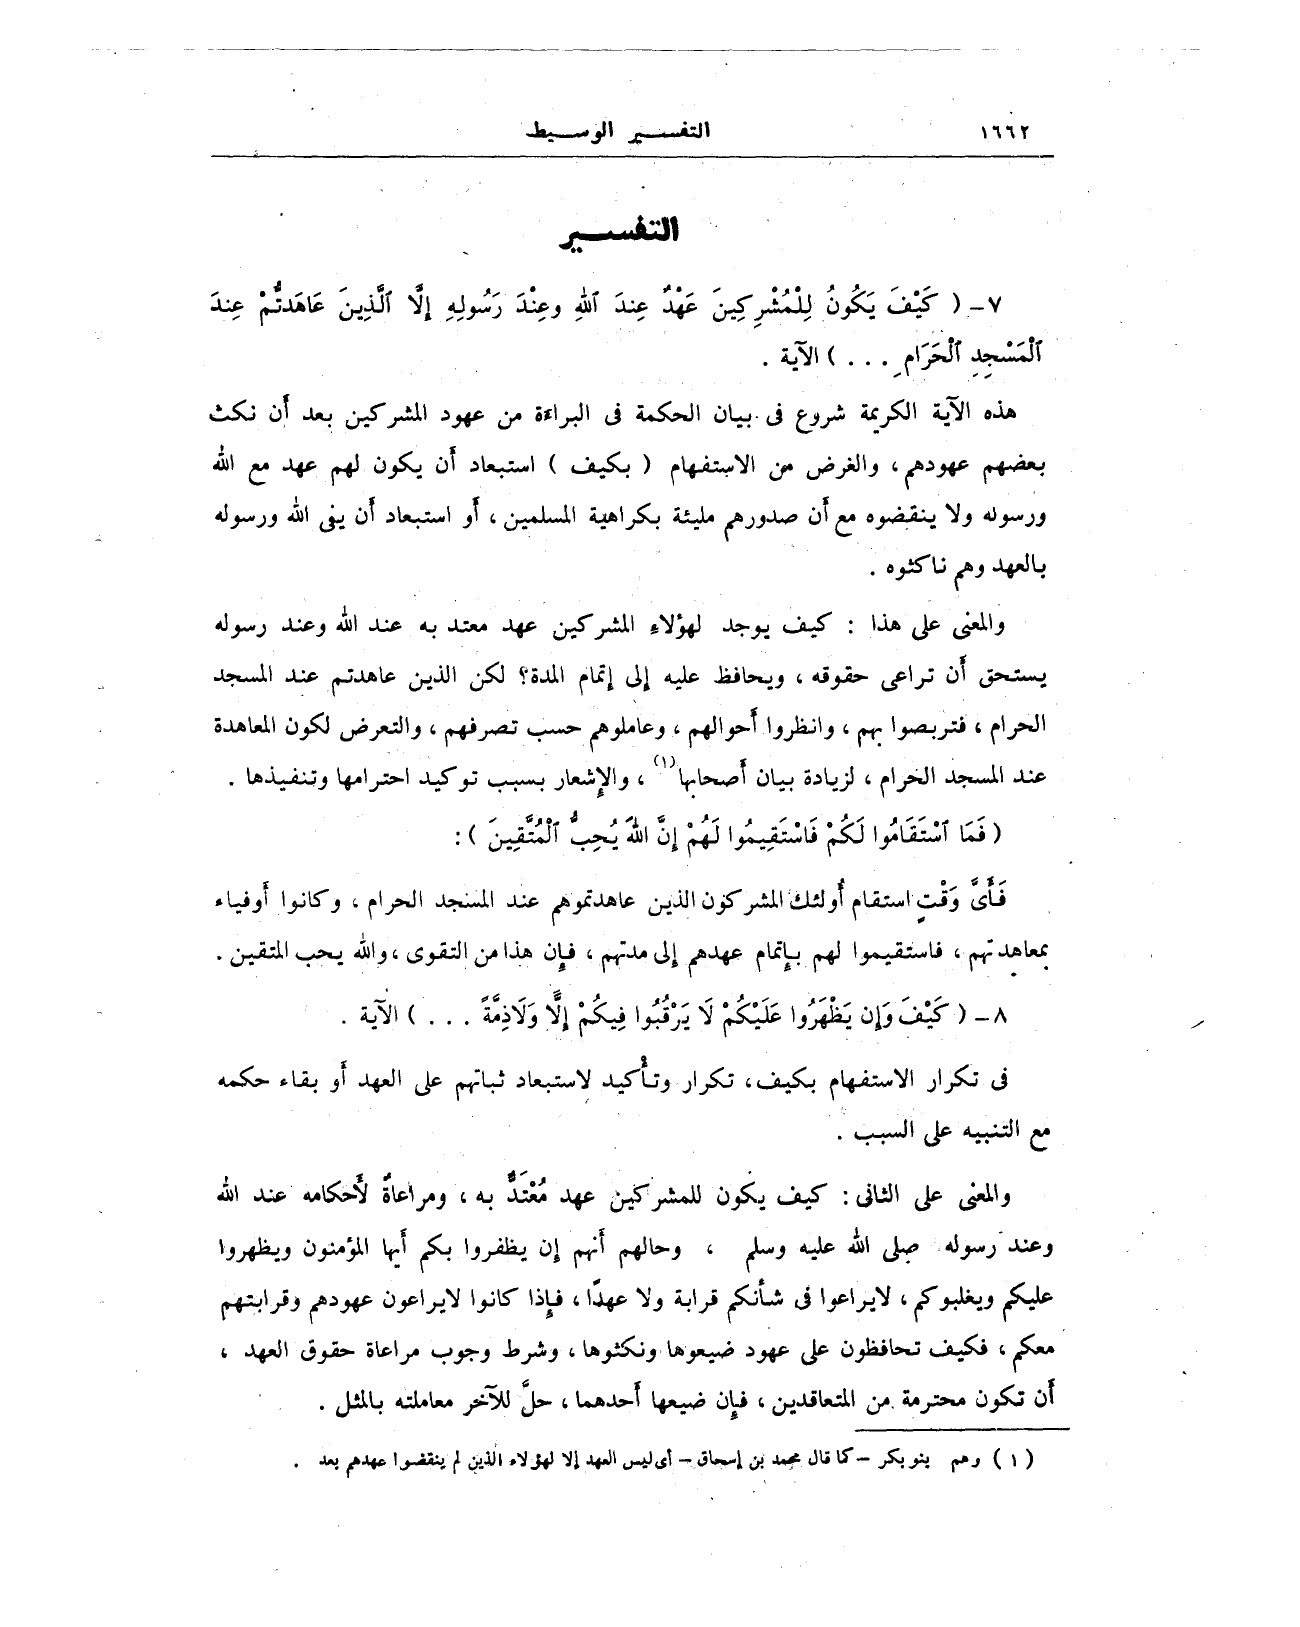 ١٦٦٢ التفسير الوسيط
التفسير
٧ – ( كَيْفَ يَكُونُ لِلْمُشْرِكِينَ عَهْدٌ عِندَ ٱللهِ وعِنْدَ رَسُولِهِ إِلَّا ٱلَّذِينَ عَاهَدتُّمْ عِندَ
ٱلْمَسْجِدِ ٱلْحَرَامِ . . . ) الآية .
هذه الآية الكريمة شروع فى بيان الحكمة فى البراءة من عهود المشركين بعد أن نكث
بعضهم عهودهم ، والغرض من الاستفهام ( بكيف ) استبعاد أن يكون لهم عهد مع الله
ورسوله ولا ينقضوه مع أن صدورهم مليئة بكراهية المسلمين ، أو استبعاد أن يفى الله ورسوله
بالعهد وهم ناكثوه .
والمعنى على هذا : كيف يوجد لهؤلاءِ المشركين عهد معتد به عند الله وعند رسوله
يستحق أن تراعى حقوقه ، ويحافظ عليه إلى إتمام المدة؟ لكن الذين عاهدتم عند المسجد
الحرام ، فتربصوا بهم ، وانظروا أحوالهم ، وعاملوهم حسب تصرفهم ، والتعرض لكون المعاهدة
عند المسجد الحرام ، لزيادة بيان أصحابها(١) ، والإشعار بسبب توكيد احترامها وتنفيذها .
( فَمَا ٱسْتَقَامُوا لَكُمْ فَاسْتَقِيمُوا لَهُمْ إِنَّ اللهَ يُحِبُّ ٱلْمُتَّقِينَ ) :
فَأَىَّ وَقْتٍ استقام أُولئك المشركون الذين عاهدتموهم عند المسجد الحرام ، وكانوا أوفياء
بمعاهدتهم ، فاستقيموا لهم بإتمام عهدهم إلى مدتهم ، فإن هذا من التقوى ، والله يحب المتقين .
٨ – ( كَيْفَ وَإِن يَظْهَرُوا عَلَيْكُمْ لَا يَرْقُبُوا فِيكُمْ إِلًّا وَلَاذِمَّةً . . . ) الآية .
فى تكرار الاستفهام بكيف، تكرار وتأكيد لاستبعاد ثباتهم على العهد أو بقاء حكمه
مع التنبيه على السبب .
والمعنى على الثانى : كيف يكون للمشركين عهد مُعْتَدٌّ به ، ومراعاةٌ لأَحكامه عند الله
وعند رسوله صلى الله عليه وسلم ، وحالهم أنهم إن يظفروا بكم أيها المؤمنون ويظهروا
عليكم ويغلبوكم ، لايراعوا فى شأنكم قرابة ولا عهدًا ، فإذا كانوا لايراعون عهودهم وقرابتهم
معكم ، فكيف تحافظون على عهود ضيعوها ونكثوها ، وشرط وجوب مراعاة حقوق العهد ،
أن تكون محترمة من المتعاقدين ، فإن ضيعها أحدهما ، حلَّ للآخر معاملته بالمثل .
( ١ ) وهم بنو بكر – كما قال محمد بن إسحاق – أى ليس العهد إلا لهؤلاء الذين لم ينقضوا عهدهم بعد .